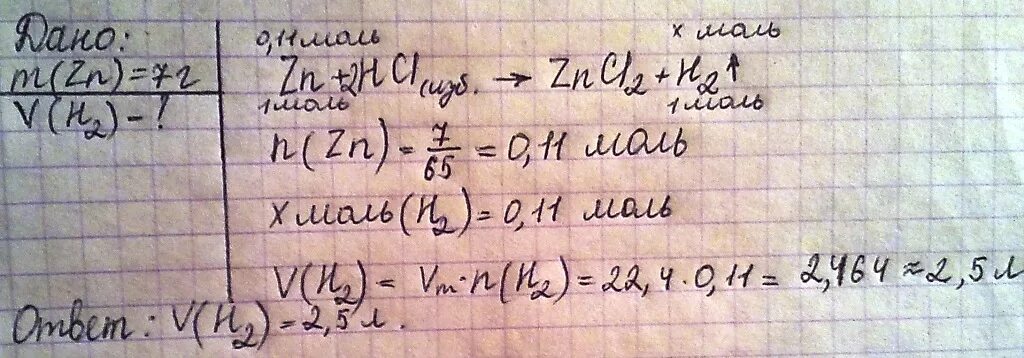 Дано:
m(Zn)=7г
V(H₂)-?
0,11моль x моль
Zn+2HCl(изб. → ZnCl₂+H₂↑
1моль 1моль
n(Zn)=7/65=0,11 моль
x моль(H₂)=0,11 моль
V(H₂)= Vm·n(H₂)=22,4·0,11= 2,464≈2,5л
Ответ: V(H₂)=2,5л.